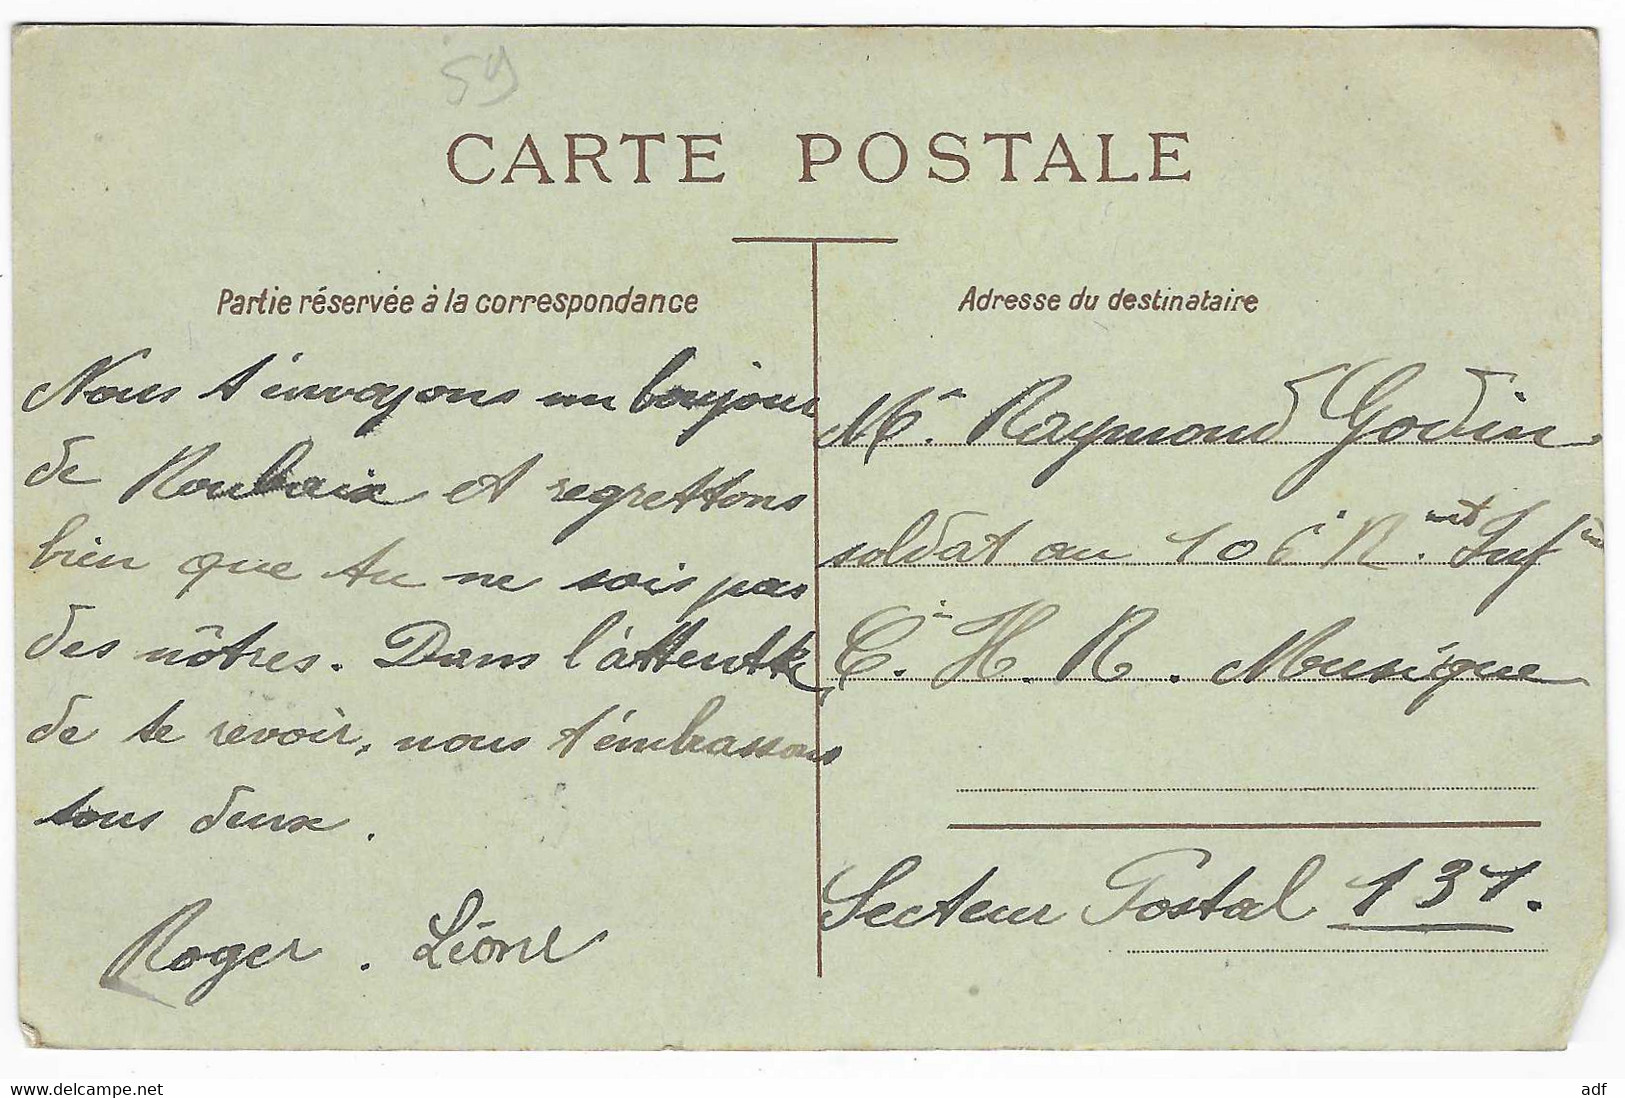 59
CARTE POSTALE
Partie réservée à la correspondance
Nous t'envoyons un bonjour
de Roubaix et regrettons
bien que tu ne sois pas
des nôtres. Dans l'attente
de te revoir, nous t'embrassons
tous deux.
Roger. Léone
Adresse du destinataire
Mr. Raymond Godin
soldat au 106e R.mt Inf
Cie. H. R. Musique
Secteur Postal 131.
www.delcampe.net
adf